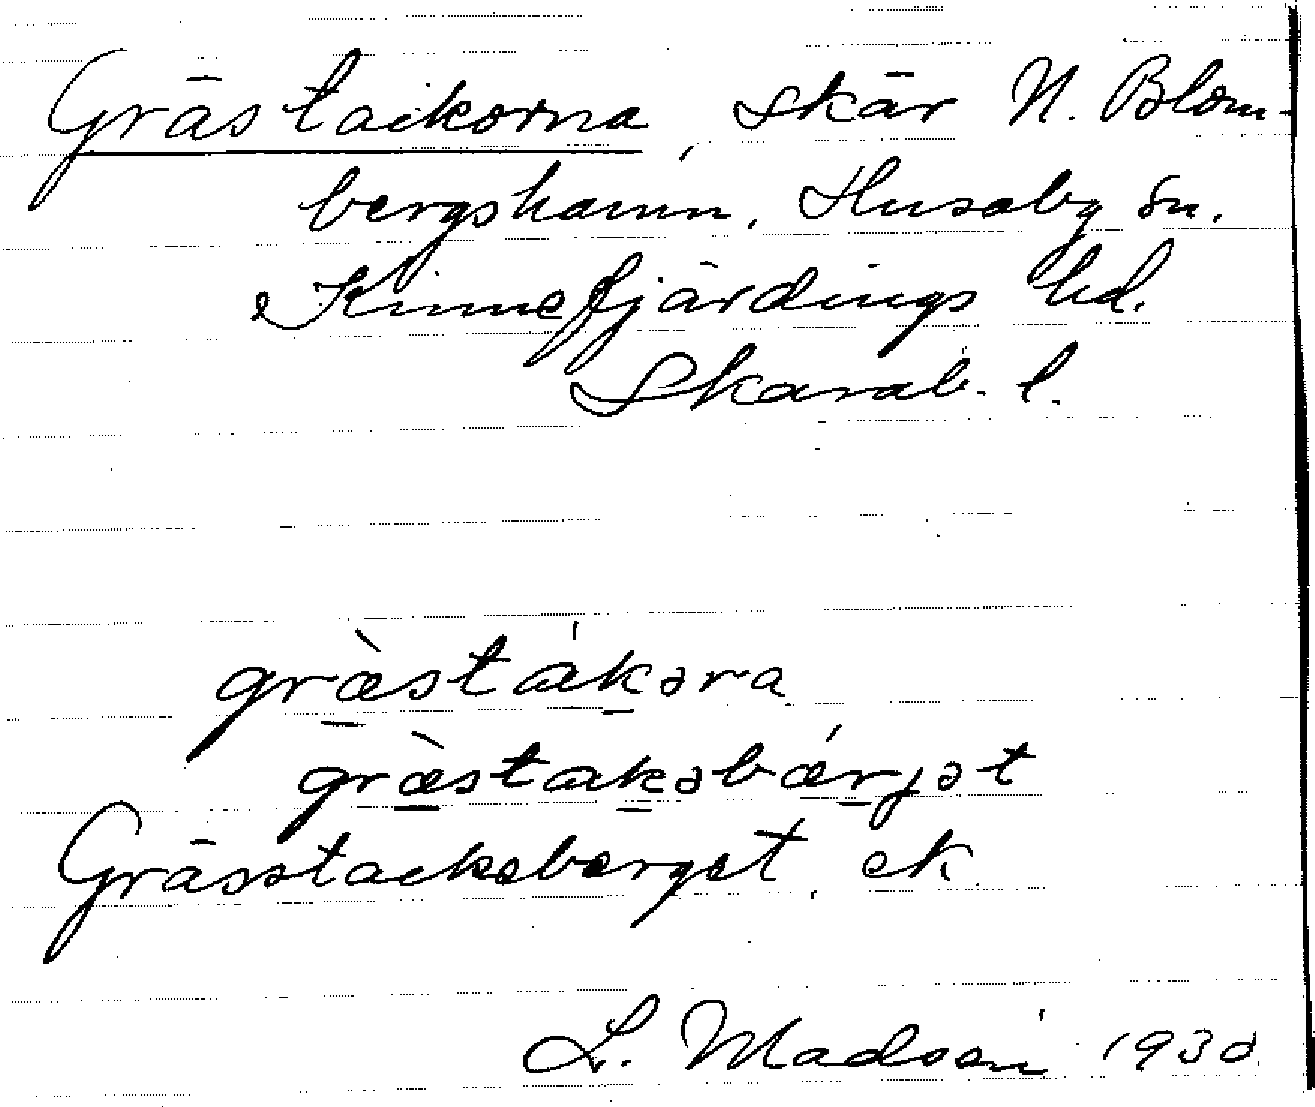 Grästackorna, skär N. Blom-
bergshamn, Husaby sn.
Kinnefjärdings hd.
Skarab. l.
græ̀stákǝra
græ̀stakǝbǽrjǝt
Grässtackeberget, ek
L. Madsén 1930